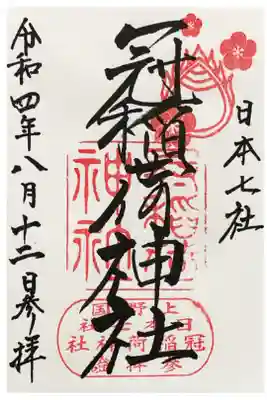 日本七社
冠稲荷神社
令和四年八月十二日参拝
上野国
日本七社
冠稲荷神社